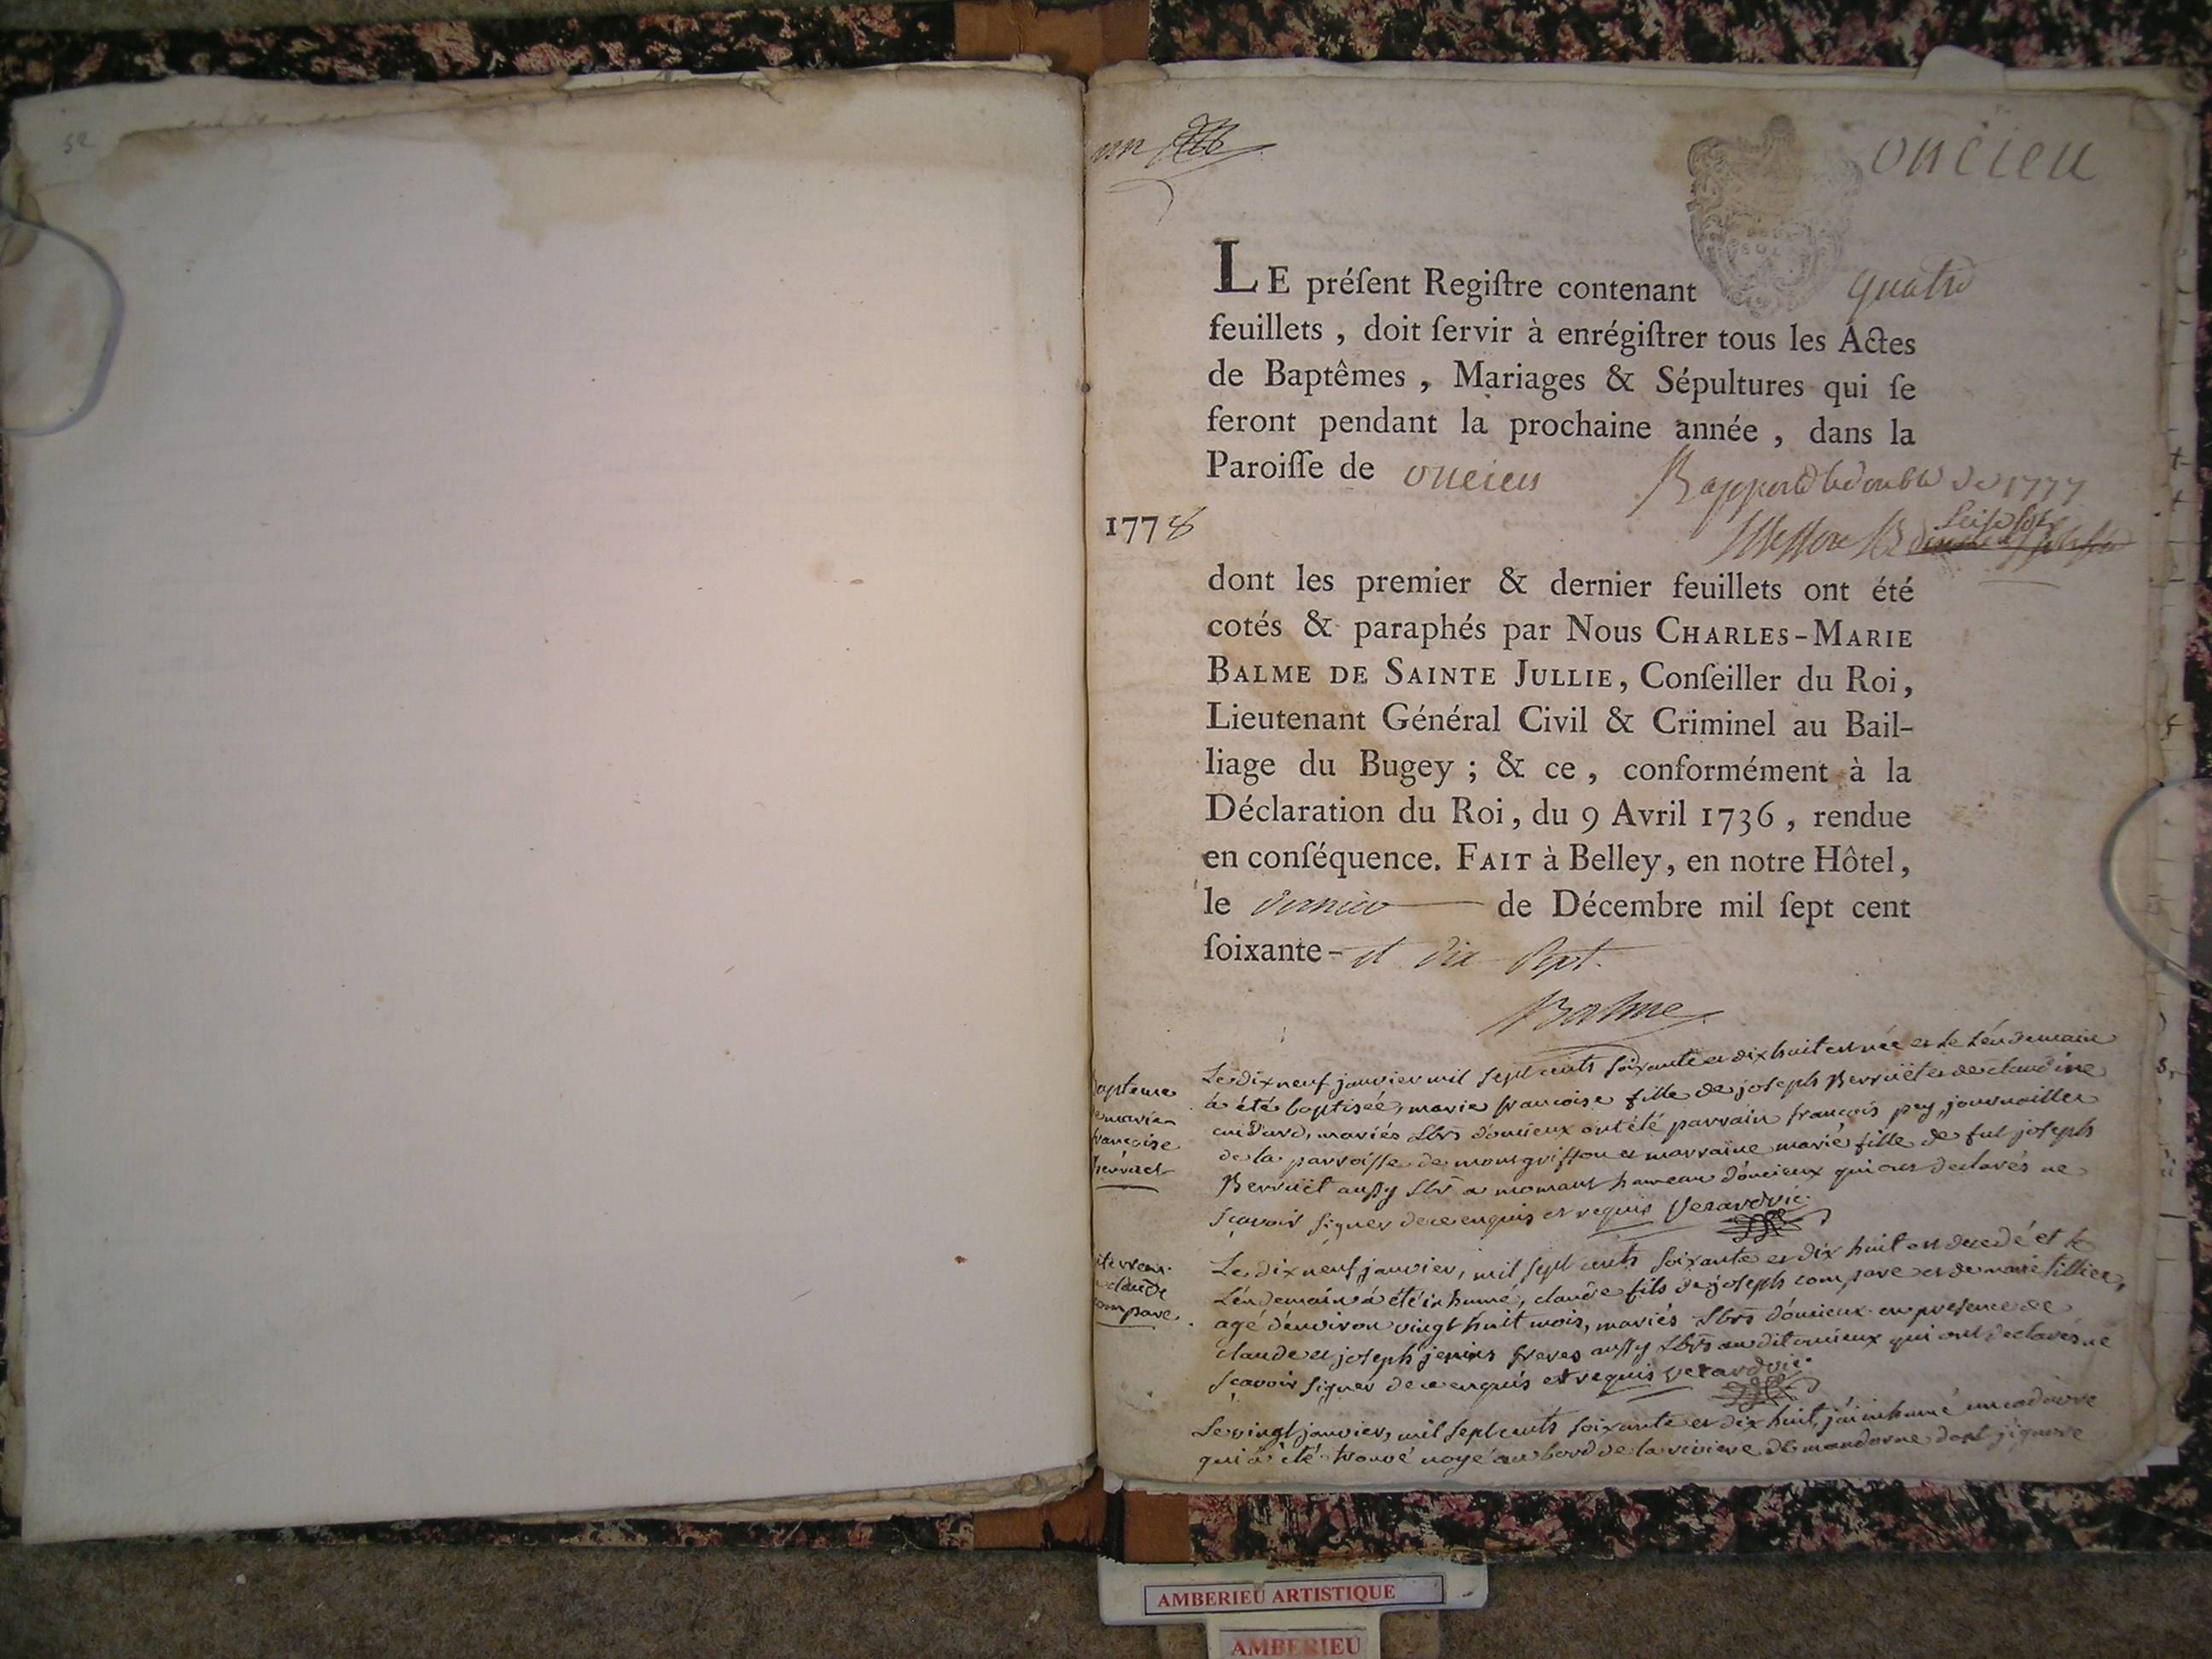 52
oncieu
LE préſent Regiſtre contenant quatre
feuillets, doit ſervir à enrégiſtrer tous les Actes
de Baptêmes, Mariages & Sépultures qui ſe
feront pendant la prochaine année, dans la
Paroiſſe de oncieu
Rapporté le double de 1777
1778
dont les premier & dernier feuillets ont été
cotés & paraphés par Nous CHARLES-MARIE
BALME DE SAINTE JULLIE, Conſeiller du Roi,
Lieutenant Général Civil & Criminel au Bail-
liage du Bugey; & ce, conformément à la
Déclaration du Roi, du 9 Avril 1736, rendue
en conſéquence. FAIT à Belley, en notre Hôtel,
le dernier de Décembre mil ſept cent
ſoixante- et dix Sept.
Balme
Le dix neuf janvier mil sept cents soixante et dix huit est née et le lendemain
à été baptiseé, marie francoise fille de joseph Berruët et de claudine
mariés d'oncieux ont été parrain françois pey, journailler
de la parroisse de montgriffon et marraine marie fille de fut joseph
Berruët aussy a momant hameau d'oncieux qui ont declarés ne
sçavoir signer de ce enquis et requis verard vic.
bapteme
de marie
francoise
Berruet
Le dix neuf janvier, mil sept cents soixante et dix huit est decedé et le
lendemain à été inhumé, claude fils de joseph compare et de marie tillier,
agé d'environ vingt huit mois, mariés d'oncieux en presence de
claude et joseph jenins freres aussy audit oncieux qui ont declarés ne
sçavoir signer de ce enquis et requis verard vic.
claude
compare
Le vingt janvier, mil sept cents soixante et dix huit, j'ai inhumé un cadavre
qui à été trouvé noyé au bord de la riviere de mandorne dont j'ignore
AMBERIEU ARTISTIQUE
AMBERIEU